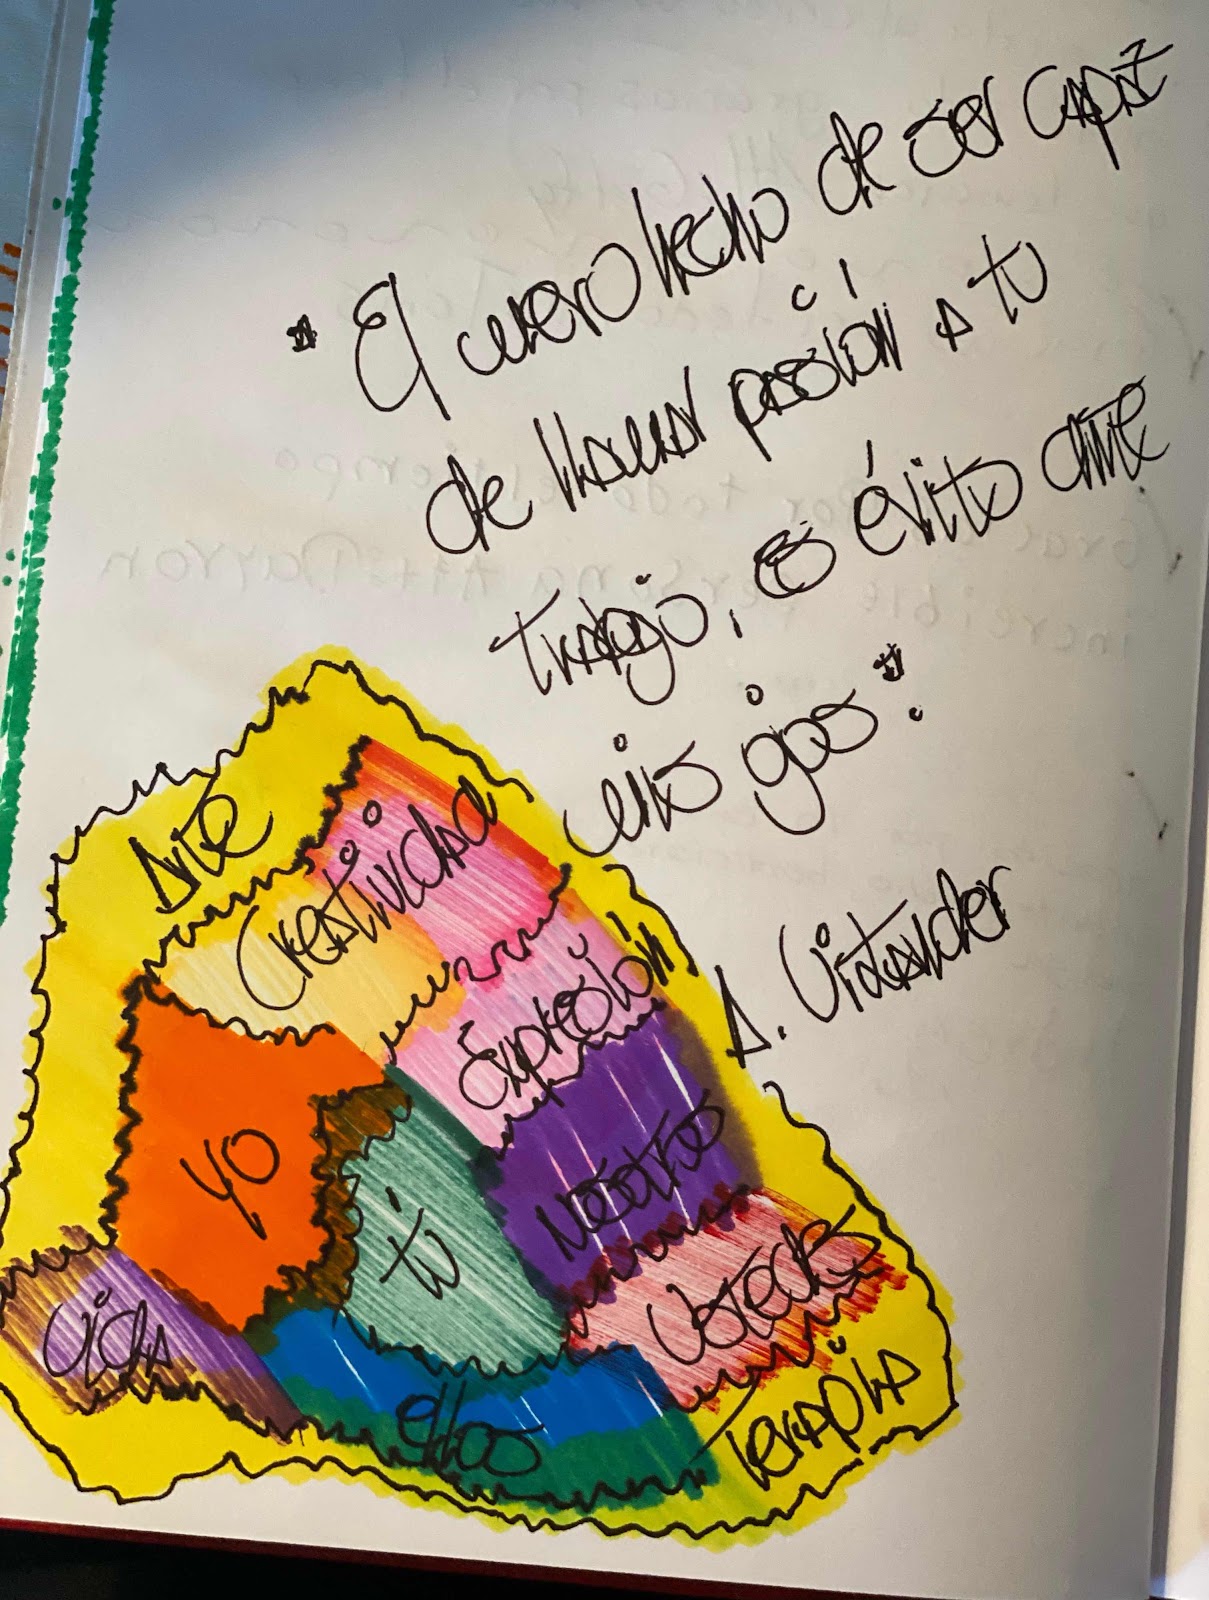 "El mero hecho de ser capaz
de llamar pasión a tu
trabajo, es éxito ante
mis ojos".
A.
Arte
Creatividad
Expresión
Yo
tú
Nosotros
Ustedes
Vida
ellos
Terapia